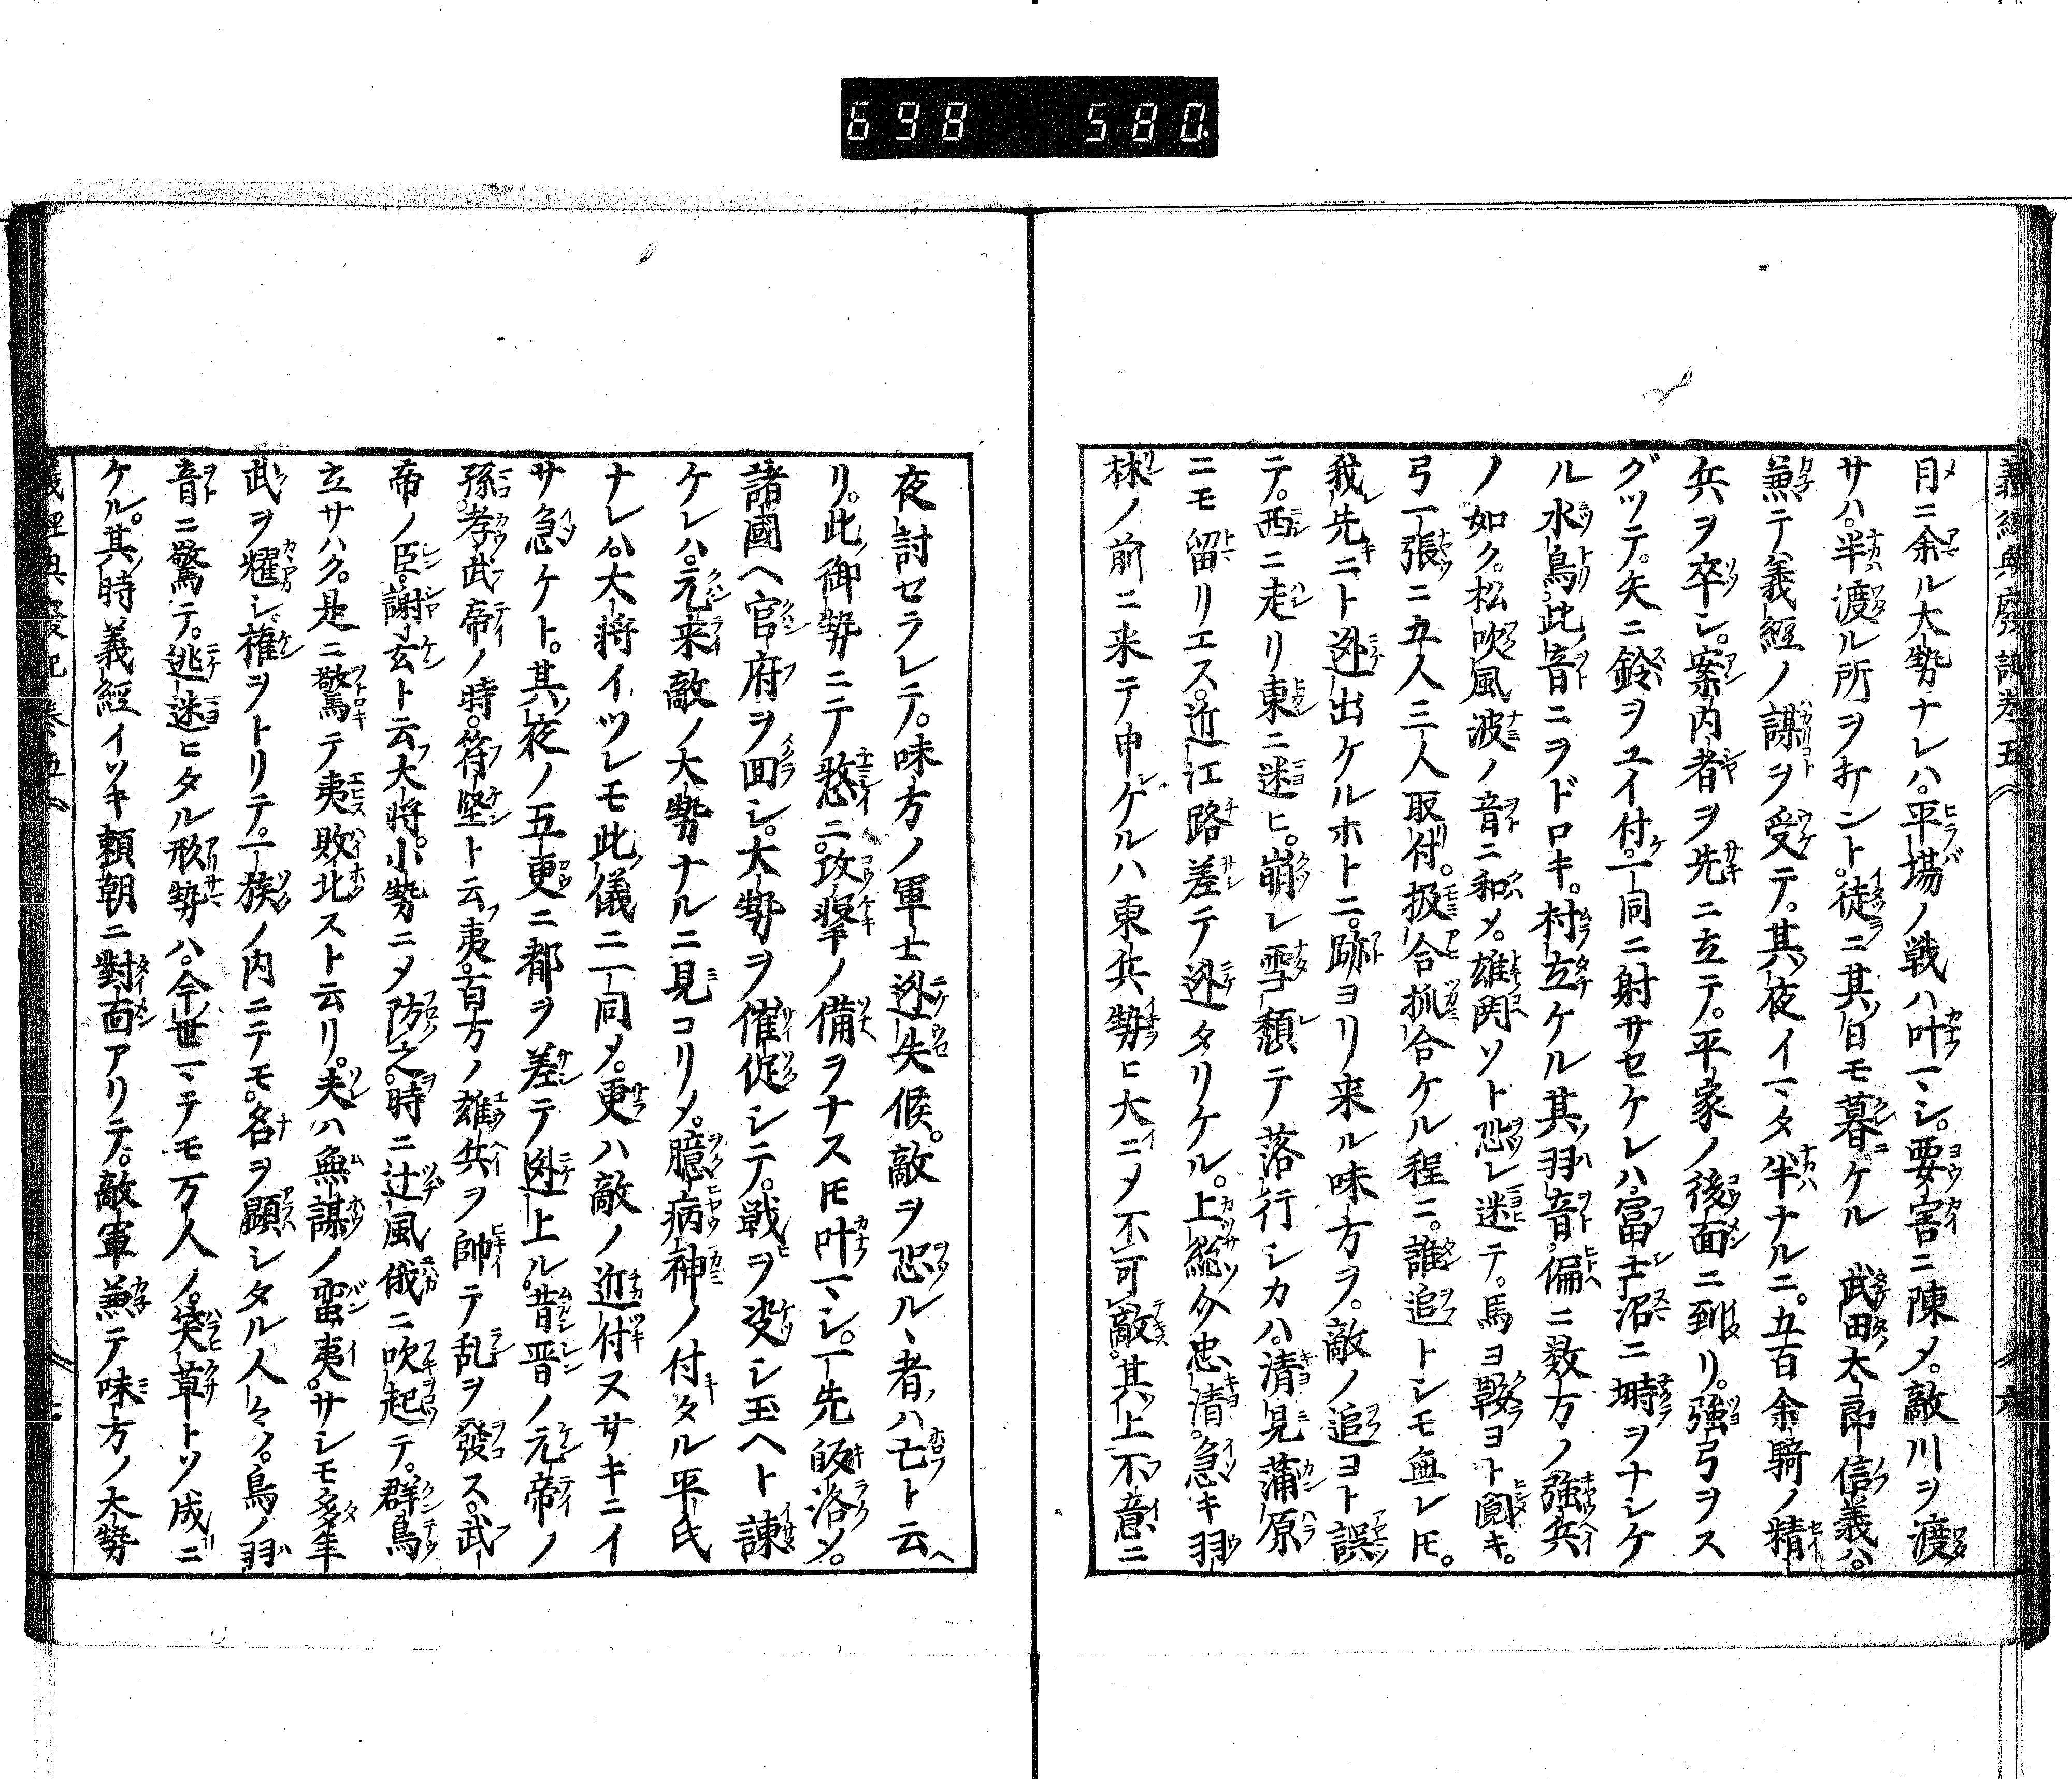 698 580.
義經興廢記卷五
六
目ニ余ル大勢ナレハ。平場ノ戦ハ叶マシ。要害ニ陳メ。敵川ヲ渡
サハ。半渡ル所ヲ打ント。徒ニ其日モ暮ケル 武田太郎信義ハ。
兼テ義經ノ謀ヲ受テ。其夜イマタ半ナルニ。五百余騎ノ精
兵ヲ卒シ。案内者ヲ先ニ立テ。平家ノ後面ニ到リ。強弓ヲス
グツテ。矢ニ鈴ヲユイ付。一同ニ射サセケレハ。富士沼ニ塒ヲナシケ
ル水鳥。此音ニヲドロキ。村立ケル其羽音。偏ニ数万ノ強兵
ノ如ク。松吹風波ノ音ニ和メ。雄鬨ソト恐レ迷テ。馬ヨ鞍ヨト鬩キ。
弓一張ニ五人三人取付。扱合抓合ケル程ニ。誰追トシモ無レ𪜈。
我先ニト迯出ケルホトニ。跡ヨリ来ル味方ヲ。敵ノ追ヨト誤
テ。西ニ走リ東ニ迷ヒ。崩レ雪頽テ落行シカハ。清見蒲原
ニモ留リエス。近江路差テ迯タリケル。上総介忠清。急キ羽
林ノ前ニ来テ申ケルハ東兵勢ヒ大ニメ不可敵。其上不意ニ
夜討セラレテ。味方ノ軍士迯失候。敵ヲ恐ルヽ者ハ亡ト云ヘ
リ。此御勢ニテ憖ニ。攻撃ノ備ヲナス𪜈叶マシ。一先皈洛メ。
諸國ヘ官府ヲ回シ。大勢ヲ催促シテ。戦ヲ决シ玉ヘト諫
ケレハ。元来敵ノ大勢ナルニ見コリメ。臆病神ノ付タル平氏
ナレハ。大将イツレモ此儀ニ一同メ。更ハ敵ノ近付ヌサキニイ
サ急ケト。其夜ノ五更ニ都ヲ差テ迯上ル。昔晋ノ元帝ノ
孫。孝武帝ノ時。符堅ト云夷。百万ノ雄兵ヲ帥テ乱ヲ發ス。武
帝ノ臣。謝玄ト云大将。小勢ニメ防之。時ニ辻風俄ニ吹起テ。群鳥
立サハク。是ニ驚テ夷敗北スト云リ。夫ハ無謀ノ蛮夷。サシモ多年
武ヲ耀シ。権ヲトリテ。一族ノ内ニテモ。名ヲ顕シタル人々ノ。鳥ノ羽
音ニ驚テ。逃迷ヒタル形勢ハ。今世マテモ万人ノ。笑草トソ成ニ
ケル。其時義經イソキ頼朝ニ對面アリテ。敵軍兼テ味方ノ大勢
義經興廢記卷五